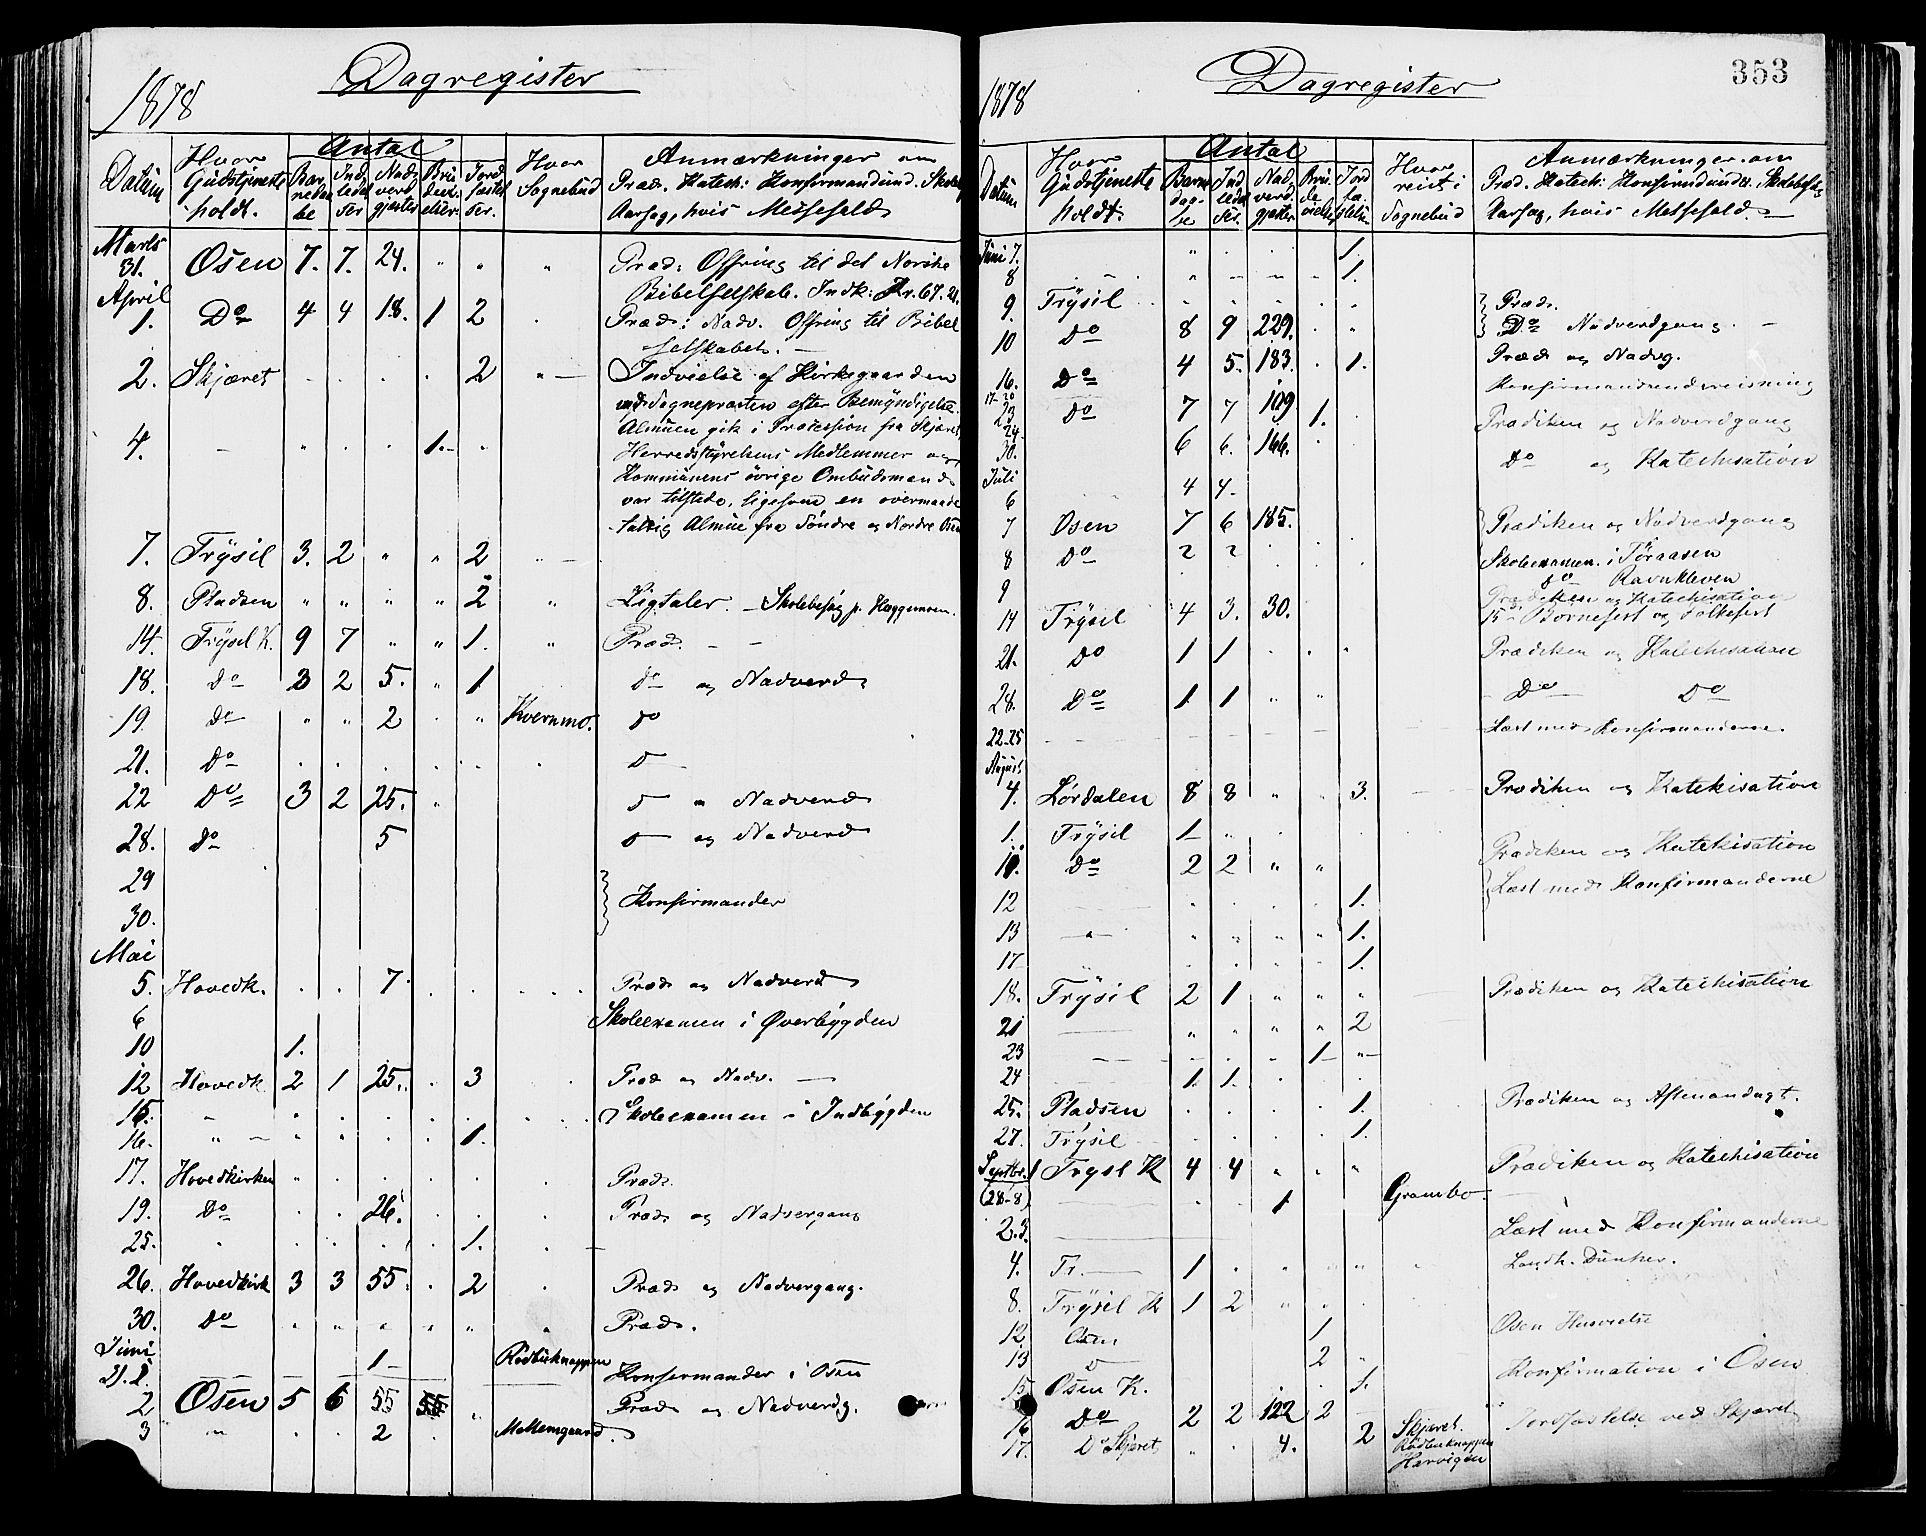 1878 Dagregister
Datum Hvor Gudstjeneste holdt. Antal Barnedaabe Indledelser Nadverdgjester Brudevielser Jordfæstelser. Hvor Sognebud Anmærkninger om
Præd. Katech: Konfirmandund. Skolebesøg
Aarsag, hvis Messefald
Marts
31. Osen 7. 7. 24. " " " Præd: Offring til det Norske
Bibelselskab. Indk: Kr. 67.21.
April
1. Do 4 4 18. 1 2 Præd: Nadv. Offring til Bibel
selskabet. —
2. Skjæret 2 " — Indvielse af Kirkegaarden
ved Sognepræsten efter Bemyndigelse.
Almuen gik i Procession fra Skjæret,
4. — " 1. — " Herredsstyrelsens Medlemmer og
Kommunens övrige Ombudsmænd
var tilstede, ligesom en overmaade
talrig Almue fra Söndre og Nordre Osen
7. Trysil 3. 2 " " 2
8. Pladsen " " " " 2 " Ligtaler. — Skolebesøg p. Hæggmoen.
14. Trysil K. 9 7 " " 1. " Præd. — —
18. Do 3 2 5. " 1 do og Nadverd
19. Do " " 2 " Kvernmo. do
21. Do
22 Do 3 2 25. " " Nadverd
28. do 5 og Nadverd
29
Konfirmander
30.
Mai
5. Hovedk. 7. Præd og Nadverd
6 Skoleexamen i Øverbygden
10 1.
12 Hovedk 2 1 25. 3 Præd og Nadv. —
15. Skoleexamen i Indbygden
16. " — 1.
17. Hovedkirken Præd.
19. Do 26. Præd og Nadvergang
25. 1.
26. Hovedkirk 3 3 55. 2 Præd og Nadvergang.
30. Do " " " " " " Præd.
Juni
1 — Rödbueknappen
31. 1. Konfirmander i Osen
2 Osen 5 6 55 55 " Præd og Nadverdg.
3 " 2
1878 Dagregister 353
Datum Hvor Gudstjeneste holdt. Antal Barnedaabe Indledelser. Nadverdgjester Brudevielser Jordfæstelser Hvor reist i Sognebud Anmærkninger om
Præd. Katech: Konfirmdundv. Skolebesøg
Aarsag, hvis Messefald. —
Juni 7. " 1.
8 1.
9. Trysil Præd.
10 Do 8 9 229. " Do Nadverdgang. —
16. Do 4 5. 183. 1. Præd og Nadvg.
17-20 Konfirmandundervisning
23 Do 7 7 109 1. Prædiken og Nadverdgang
24.
30. 6 6. 166. Do og Katechisation
Juli
6 4 4.
7 Osen 7 6 185. Prædiken og Nadverdgang
8 Do 2 2 Skoleexamen i Töraasen
9 do Ravnkleven
14 Trysil 4 3. 30. Prædiken og Katechisation
15 — Börnefest og Folkefest
21. Do 1 1 Prædiken og Katechisation
28. Do 1 1 " " Do Do
22-25 Læst med Konfirmanderne.
August
4. Lørdalen 8 8 " 3. Prædiken og Katekisation
1. Trysil 1 "
11. Do 2 2 " " Prædiken og Katekisation
Læst med Konfirmanderne
12 1.
13 — " — 1.
17 1.
18. Trysil 2 1 " " " Prædiken og Katechisation
21 " " " " 2
23 1 —
24 1. 1.
25. Pladsen 1. Prædiken og Aftenandagt.
27. Trysil 1.
Septbr. 1 Trysl K 4 4 " " " Prædiken og Katechisation
(28-8) 1 Grambo.
2.3. Læst med Konfirmanderne
4. Tr. 1 Landh. Dunker.
8. Trysil K 1 2 " "
12 Osen 1 Osen Husvielse
13 2
15 Osen K. 1. Konfirmation i Osen
16 Do 2 2 122 2 Skjæret. Jordfæstelse ved Skjæret
17. Do Skjæret, " 4. 2 Rödbueknappen
Harvigen